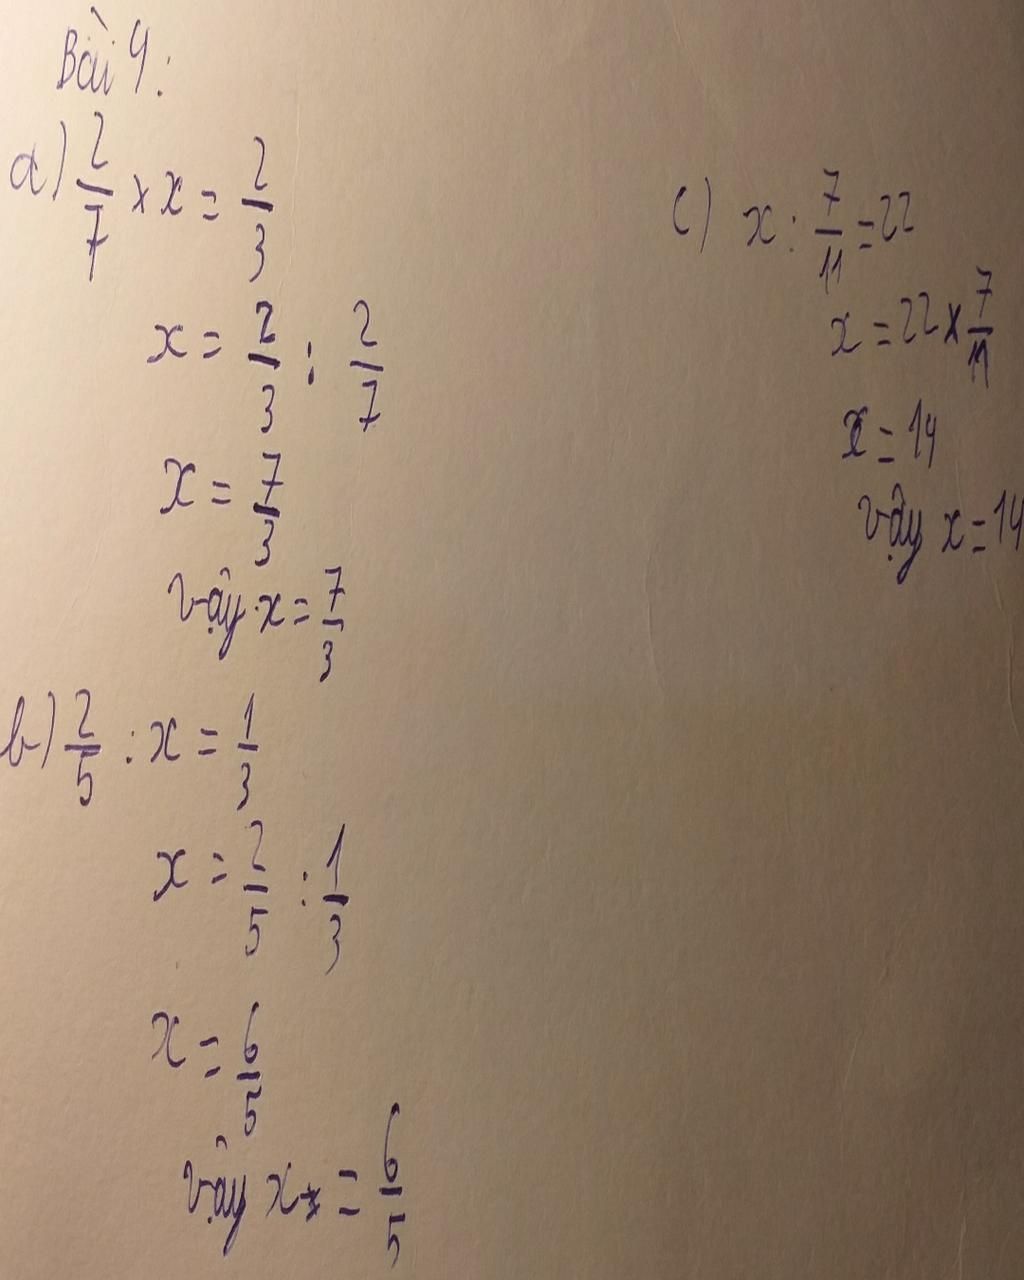 Bài 4:
a) 2/7 × x = 2/3
x = 2/3 : 2/7
x = 7/3
Vậy x = 7/3
b) 2/5 : x = 1/3
x = 2/5 : 1/3
x = 6/5
Vậy x = 6/5
c) x : 7/11 = 22
x = 22 × 7/11
x = 14
Vậy x = 14